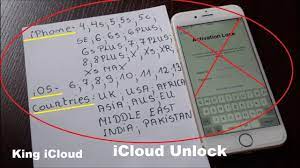 iPhone: 4,4s,5,5s,5c,
SE,6,6s,6PLUS,
6s PLUS,7,7PLUS,
8,8PLUS,X,XS,XR,
XS MAX
iOS: 6,7,8,9,10,11,12,13
Countries: UK, USA, AFRICA
ASIA, AUS, EU
MIDDLE EAST
INDIA, PAKISTAN
Activation Lock
King iCloud
iCloud Unlock